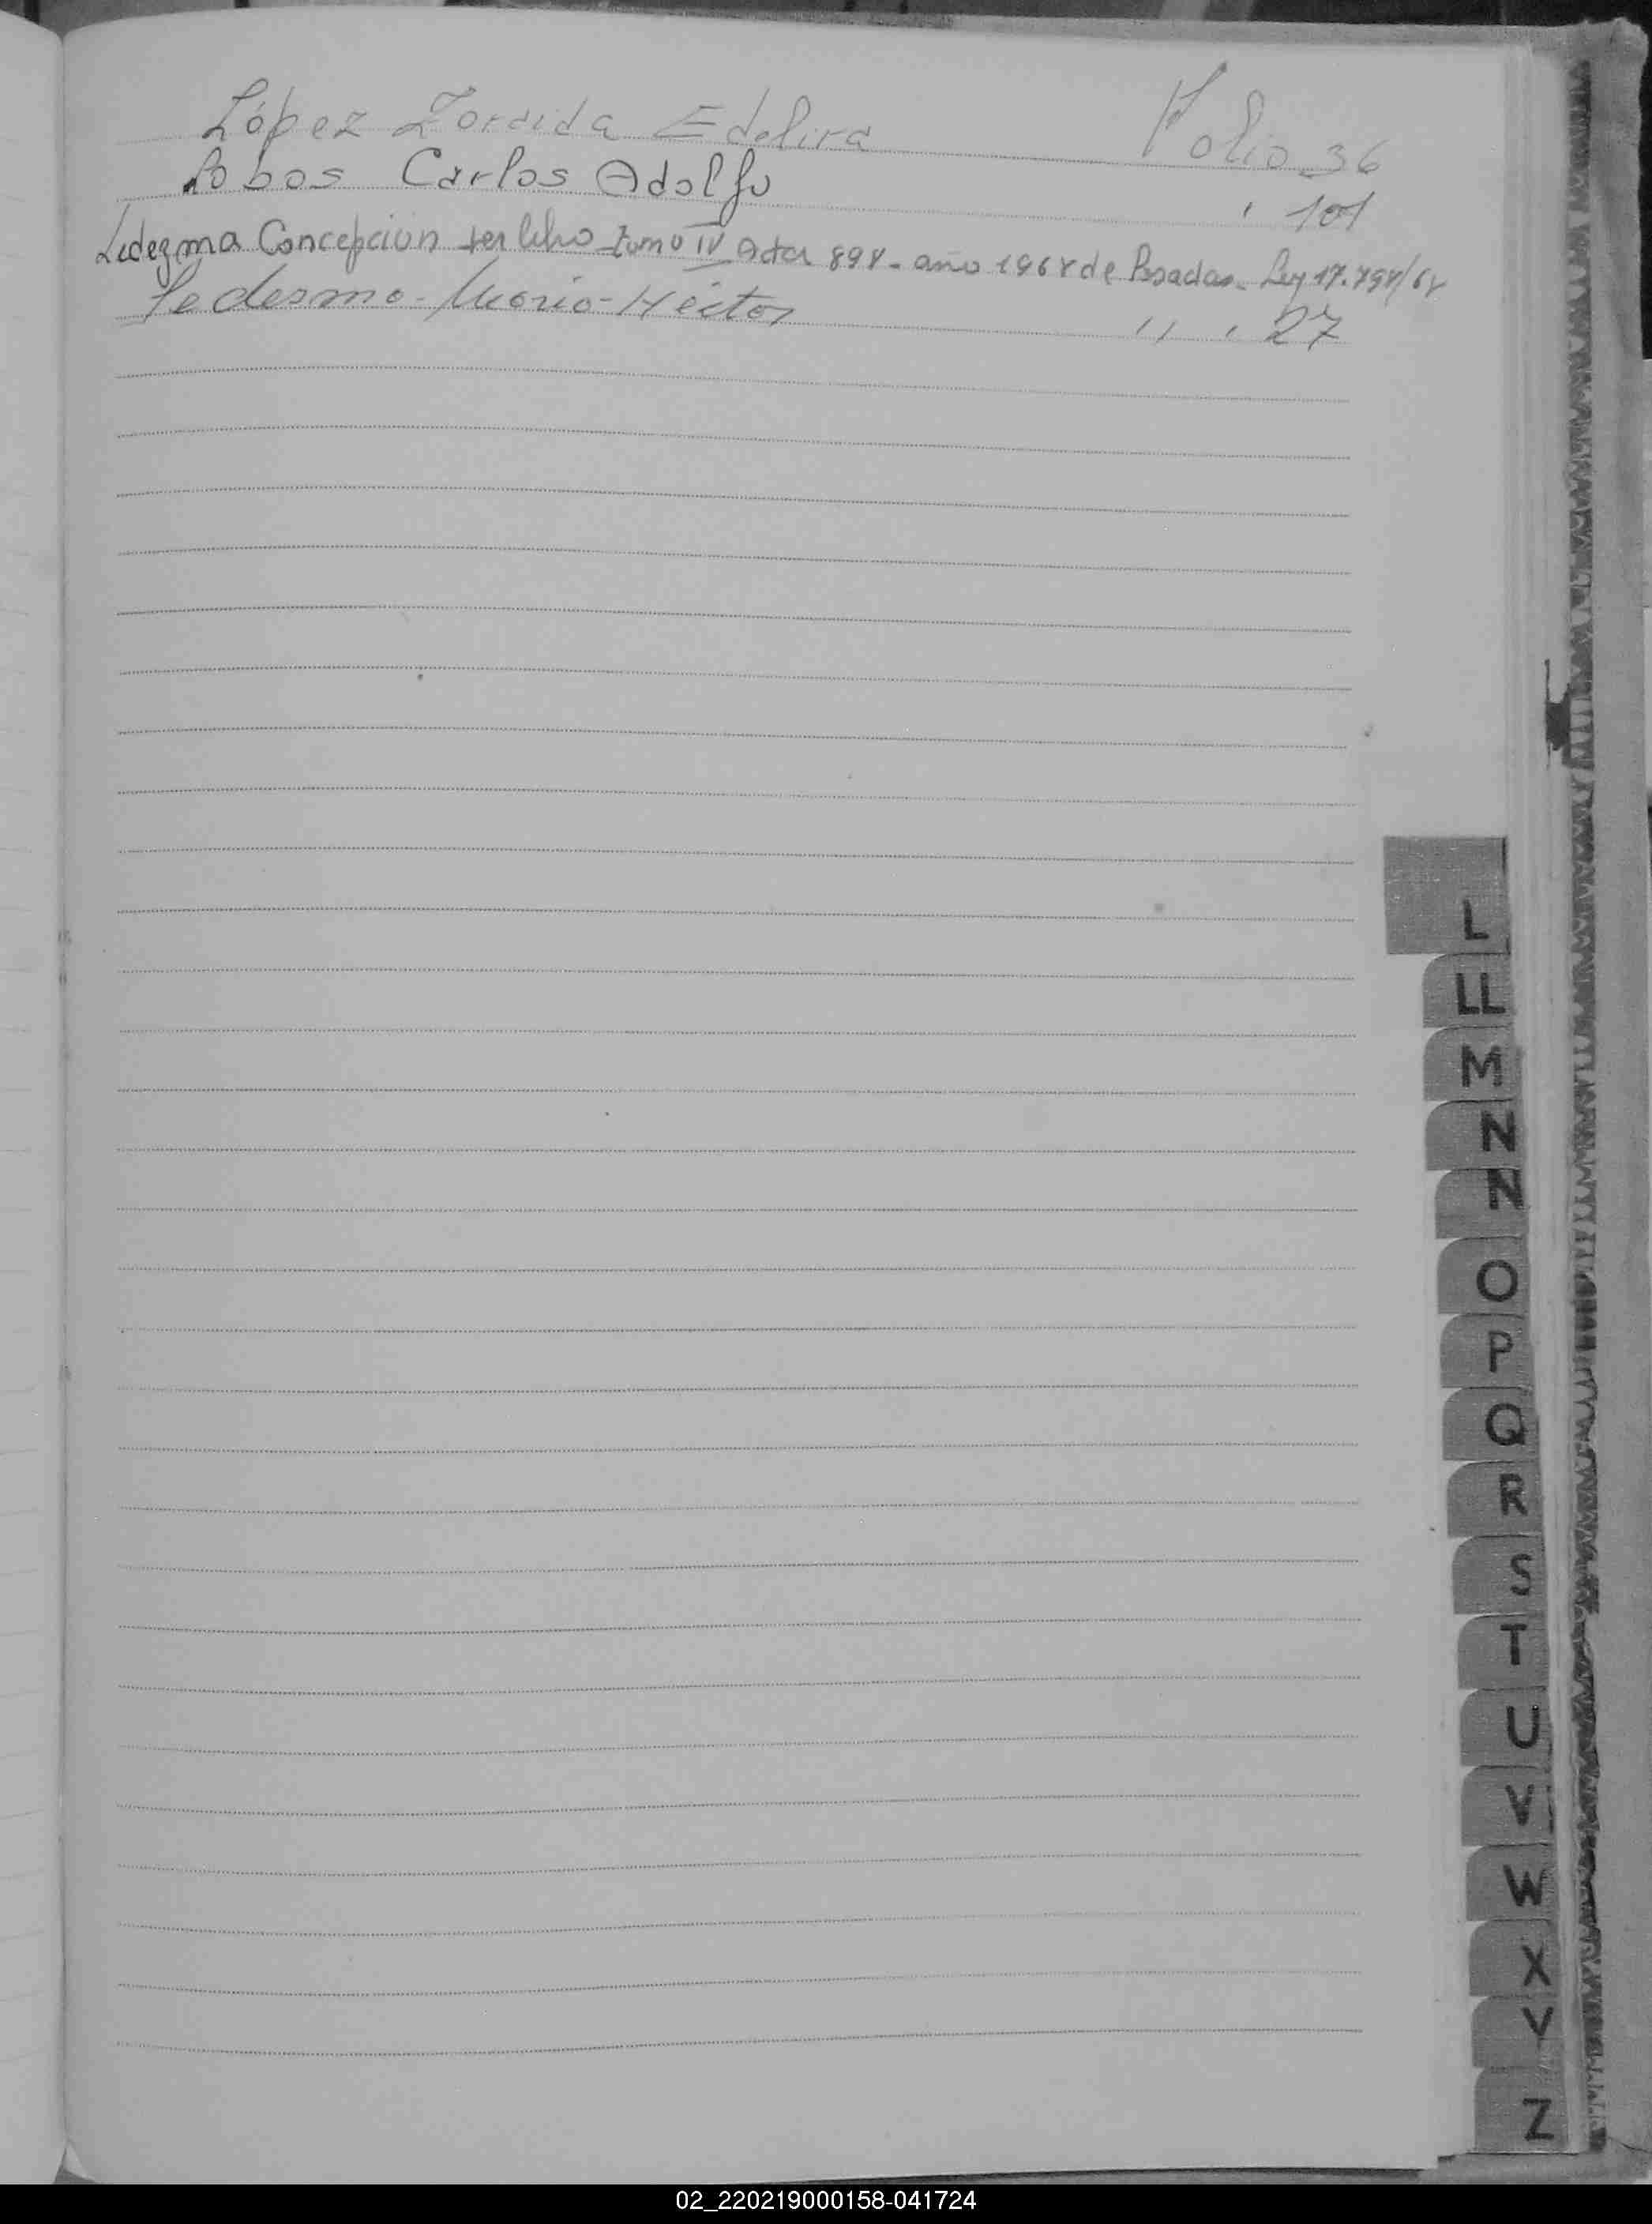 López Zoraida Edelira Folio 36
Lobos Carlos Adolfo " 101
Ledezma Concepción ver libro tomo IV Acta 898 - año 1968 de Posadas - Ley 17.798/68
Ledesma - Mario - Héctor " " 27
L
LL
M
N
N
O
P
Q
R
S
T
U
V
W
X
Y
Z
02_220219000158-041724